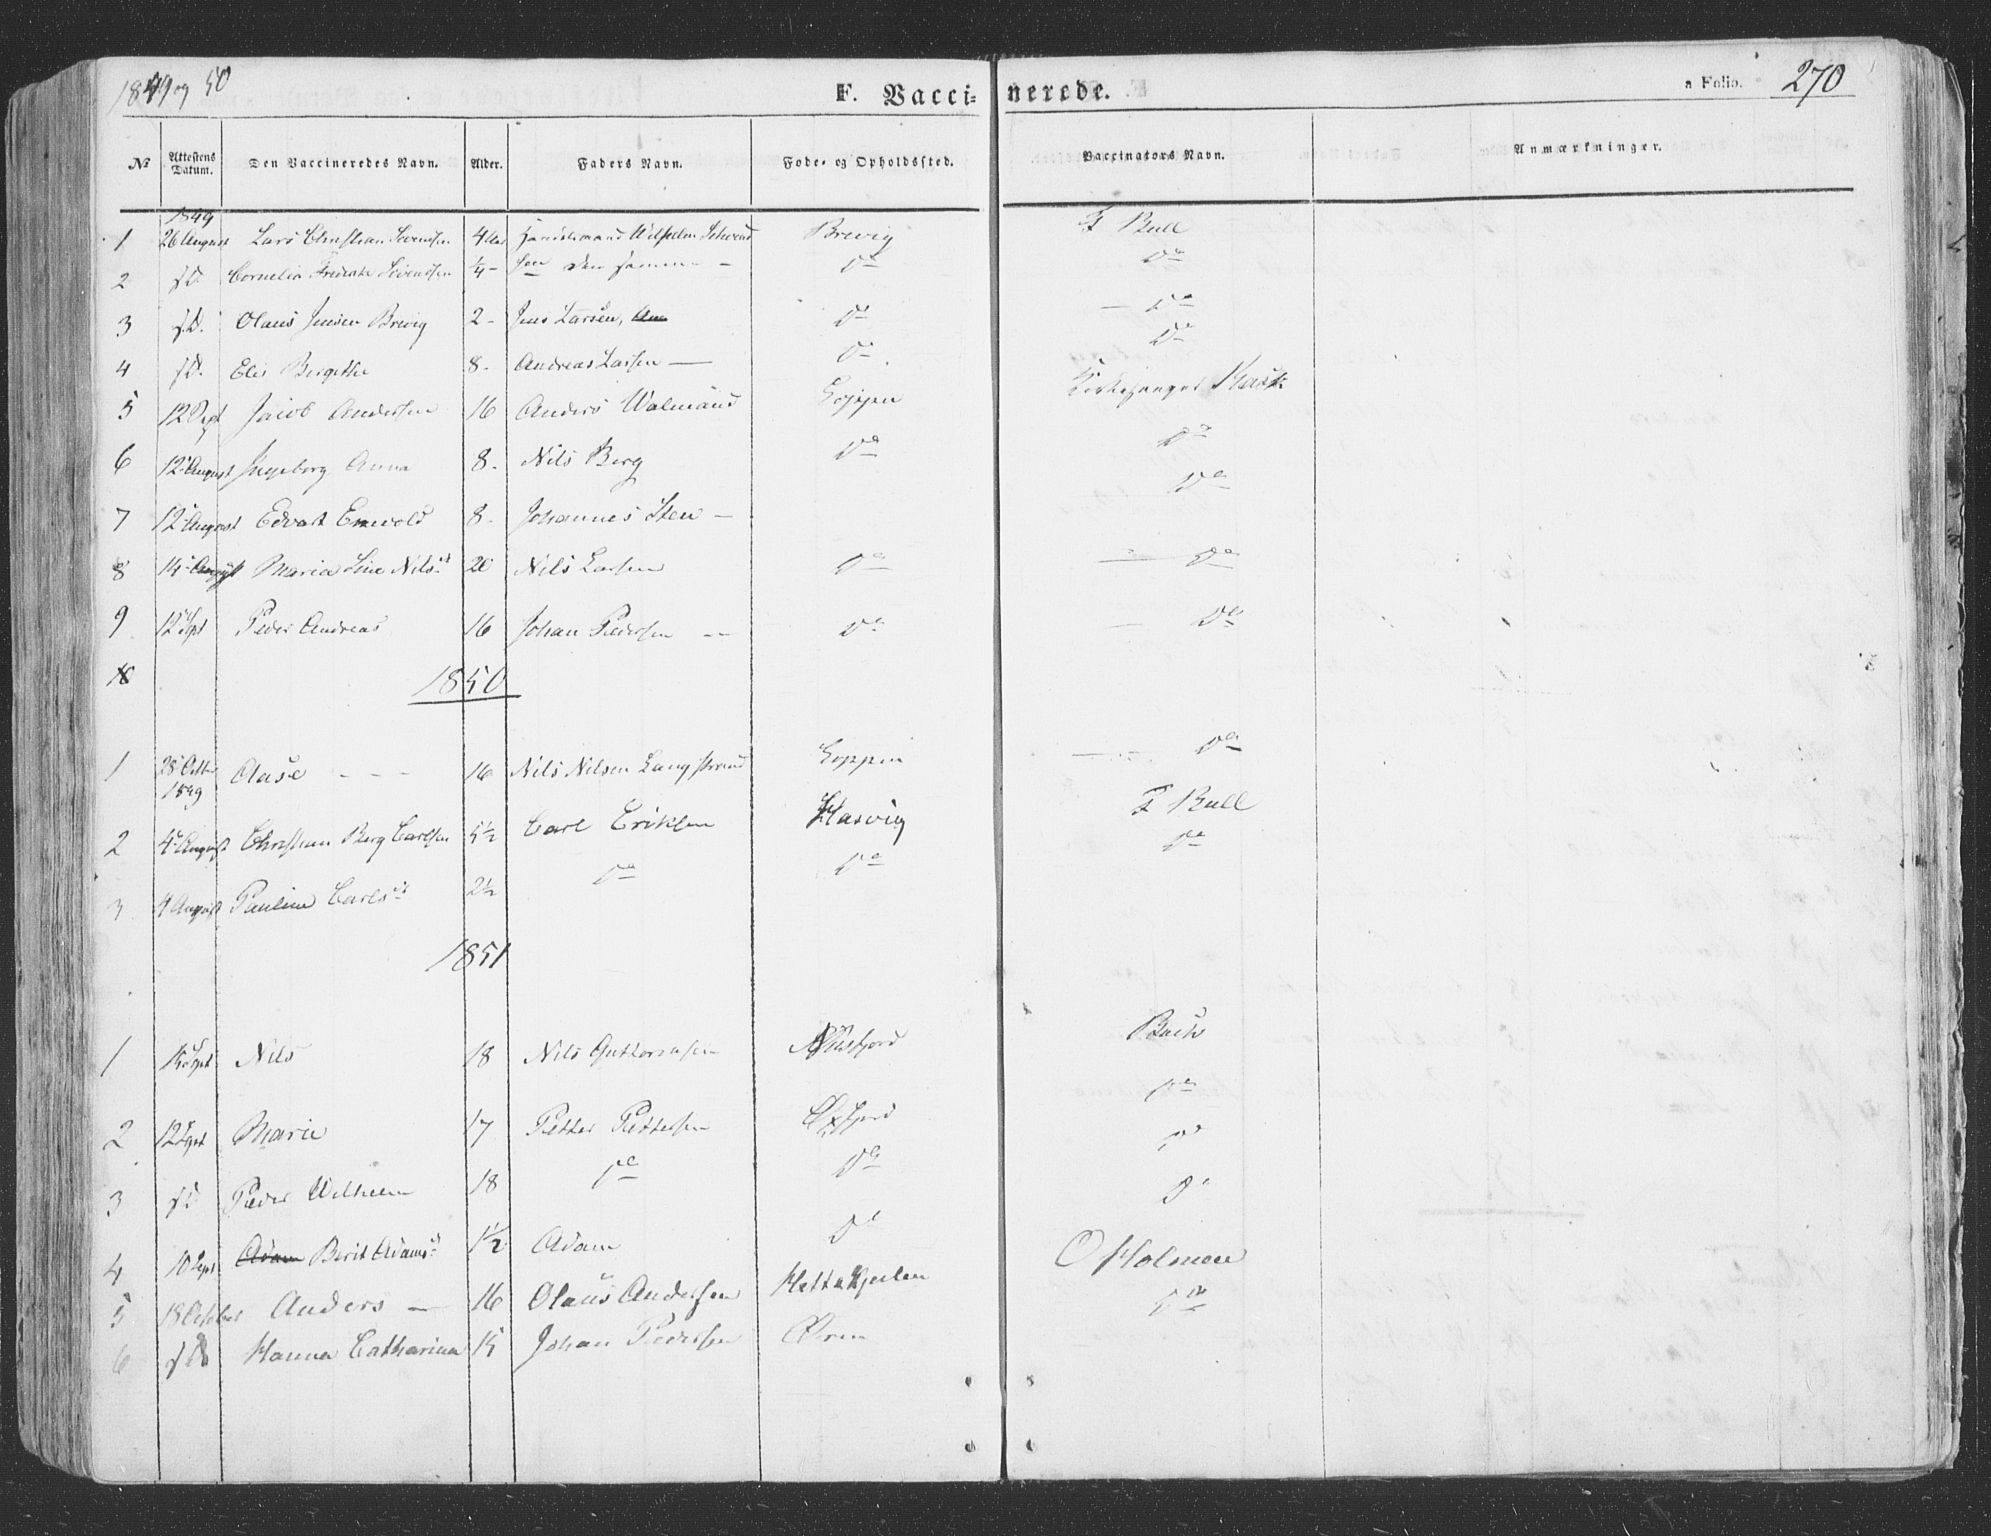 1849 og 50 F. Vacci= nerede. a Folio. 270
№ Attestens Datum. Den Vaccineredes Navn. Alder. Faders Navn. Føde- og Opholdssted. Vaccinators Navn. Anmærkninger.
1849
1 26 August Lars Christian Svendsen 4 Handelsmand Wilhelm Brevig F Bull
2 sD. Cornelia Fredrikke Svendsen ¼ - den samme - Do Do
3 sD. Olaus Jensen Brevig 2 - Jens Larsen, Do - Do
4 sD. Elis Bergithe 8 - Andreas Larsen - Do Do
5 12 Sept Jacob Andersen 16 Anders Walmand Loppen Kirkesanger
6 12 August Ingeborg Anna 8 - Nils Berg Do Do
7 12 August Edvart Enevold 8 - Johannes Sten - Do
8 14 August Maria Line Nilsd 20 Nils Larsen Do Do
9 12 Sept Peder Andreas 16 Johan Pedersen - Do Do
1850
1 28 Octbr 1849 Aase - - - 16 Nils Nilsen Langstrand Loppen Do
2 4 August Christian Berg Carlsen 5½ Carl Eriksen Hasvig F Bull
3 4 August Pauline Carlsd 2½ Do Do Do
1851
1 Sept Nils 18 Nils Guttormsen Bach
2 12 Sept Marie 17 Petter Pettersen Øxfjord Do
3 sD. Peder Wilhelm 18 Do Do Do
4 10 Sept Adam Berit Adamsd 1½ Adam Do D
5 18 October Anders - 16 Olaus Andersen O Holmen
6 sD Hanna Catharina 15 Johan Pedersen Øren Do